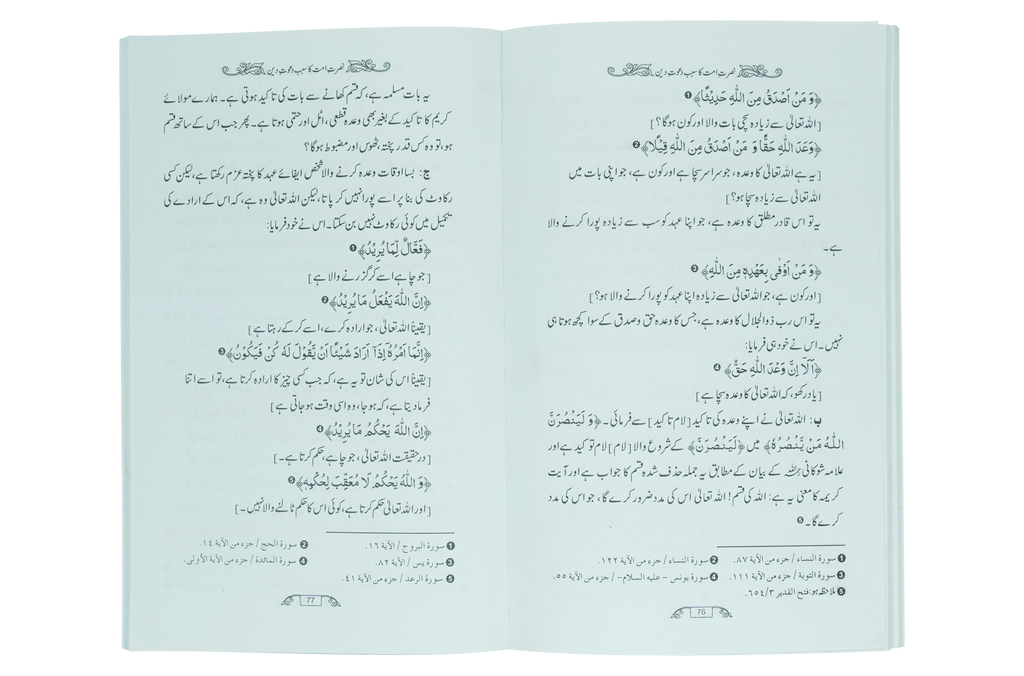 نصرتِ امت کا سبب دعوتِ دین
﴿وَ مَنْ اَصْدَقُ مِنَ اللّٰهِ حَدِيْثًا﴾❶
[اللہ تعالیٰ سے زیادہ سچی بات والا اور کون ہوگا؟]
﴿وَعْدَ اللّٰهِ حَقًّا وَ مَنْ اَصْدَقُ مِنَ اللّٰهِ قِيْلًا﴾❷
[یہ ہے اللہ تعالیٰ کا وعدہ، جو سراسر سچا ہے اور کون ہے، جو اپنی بات میں
اللہ تعالیٰ سے زیادہ سچا ہو؟]
یہ تو اس قادرِ مطلق کا وعدہ ہے، جو اپنا عہد کو سب سے زیادہ پورا کرنے والا
ہے۔
﴿وَ مَنْ اَوْفٰى بِعَهْدِهٖ مِنَ اللّٰهِ﴾❸
[اور کون ہے، جو اللہ تعالیٰ سے زیادہ اپنا عہد کو پورا کرنے والا ہو؟]
یہ تو اس رب ذوالجلال کا وعدہ ہے، جس کا وعدہ حق و صدق کے سوا کچھ ہوتا ہی
نہیں۔ اس نے خود ہی فرمایا:
﴿اَلَآ اِنَّ وَعْدَ اللّٰهِ حَقٌّ﴾❹
[یاد رکھو، کہ اللہ تعالیٰ کا وعدہ سچا ہے]
ب: اللہ تعالیٰ نے اپنے وعدہ کی تاکید [لام تاکید] سے فرمائی۔ ﴿وَ لَيَنْصُرَنَّ
اللّٰهُ مَنْ يَّنْصُرُهٗ﴾ میں ﴿لَيَنْصُرَنَّ﴾ کے شروع والا [لام] لام توکید ہے اور
علامہ شوکانی رحمہ اللہ کے بیان کے مطابق یہ جملہ حذف شدہ قسم کا جواب ہے اور آیت
کریمہ کا معنی یہ ہے: اللہ کی قسم! اللہ تعالیٰ اس کی مدد ضرور کرے گا، جو اس کی مدد
کرے گا۔❺
❶ سورة النساء / جزء من الآية ٨٧.
❷ سورة النساء / جزء من الآية ١٢٢.
❸ سورة التوبة / جزء من الآية ١١١.
❹ سورة يونس - عليه السلام- / جزء من الآية ٥٥.
❺ ملاحظہ ہو: فتح القدير ٦٥٤/٣.
76
نصرتِ امت کا سبب دعوتِ دین
یہ بات مسلمہ ہے، کہ قسم کھانے سے بات کی تاکید ہوتی ہے۔ ہمارے مولائے
کریم کا تاکید کے بغیر بھی وعدہ قطعی، اٹل اور حتمی ہوتا ہے۔ پھر جب اس کے ساتھ قسم
ہو، تو وہ کس قدر پختہ، ٹھوس اور مضبوط ہوگا؟
ج: بسا اوقات وعدہ کرنے والا شخص ایفائے عہد کا پختہ عزم رکھتا ہے، لیکن کسی
رکاوٹ کی بنا پر اسے پورا نہیں کر پاتا، لیکن اللہ تعالیٰ وہ ہے، کہ اس کے ارادے کی
تکمیل میں کوئی رکاوٹ نہیں بن سکتا۔ اس نے خود فرمایا:
﴿فَعَّالٌ لِّمَا يُرِيْدُ﴾❶
[جو چاہے اسے کر گزرنے والا ہے]
﴿اِنَّ اللّٰهَ يَفْعَلُ مَا يُرِيْدُ﴾❷
[یقیناً اللہ تعالیٰ، جو ارادہ کرے، اسے کر کے رہتا ہے]
﴿اِنَّمَآ اَمْرُهٗٓ اِذَآ اَرَادَ شَيْئًا اَنْ يَّقُوْلَ لَهٗ كُنْ فَيَكُوْنُ﴾❸
[یقیناً اس کی شان تو یہ ہے، کہ جب کسی چیز کا ارادہ کرتا ہے، تو اسے اتنا
فرما دیتا ہے، کہ ہوجا، وہ اسی وقت ہو جاتی ہے]
﴿اِنَّ اللّٰهَ يَحْكُمُ مَا يُرِيْدُ﴾❹
[درحقیقت اللہ تعالیٰ، جو چاہے، حکم کرتا ہے۔]
﴿وَ اللّٰهُ يَحْكُمُ لَا مُعَقِّبَ لِحُكْمِهٖ﴾❺
[اور اللہ تعالیٰ حکم کرتا ہے، کوئی اس کا حکم ٹالنے والا نہیں۔]
❶ سورة البروج / الآية ١٦.
❷ سورة الحج / جزء من الآية ١٤.
❸ سورة يس / الآية ٨٢.
❹ سورة المائدة / جزء من الآية الأولى.
❺ سورة الرعد / جزء من الآية ٤١.
77